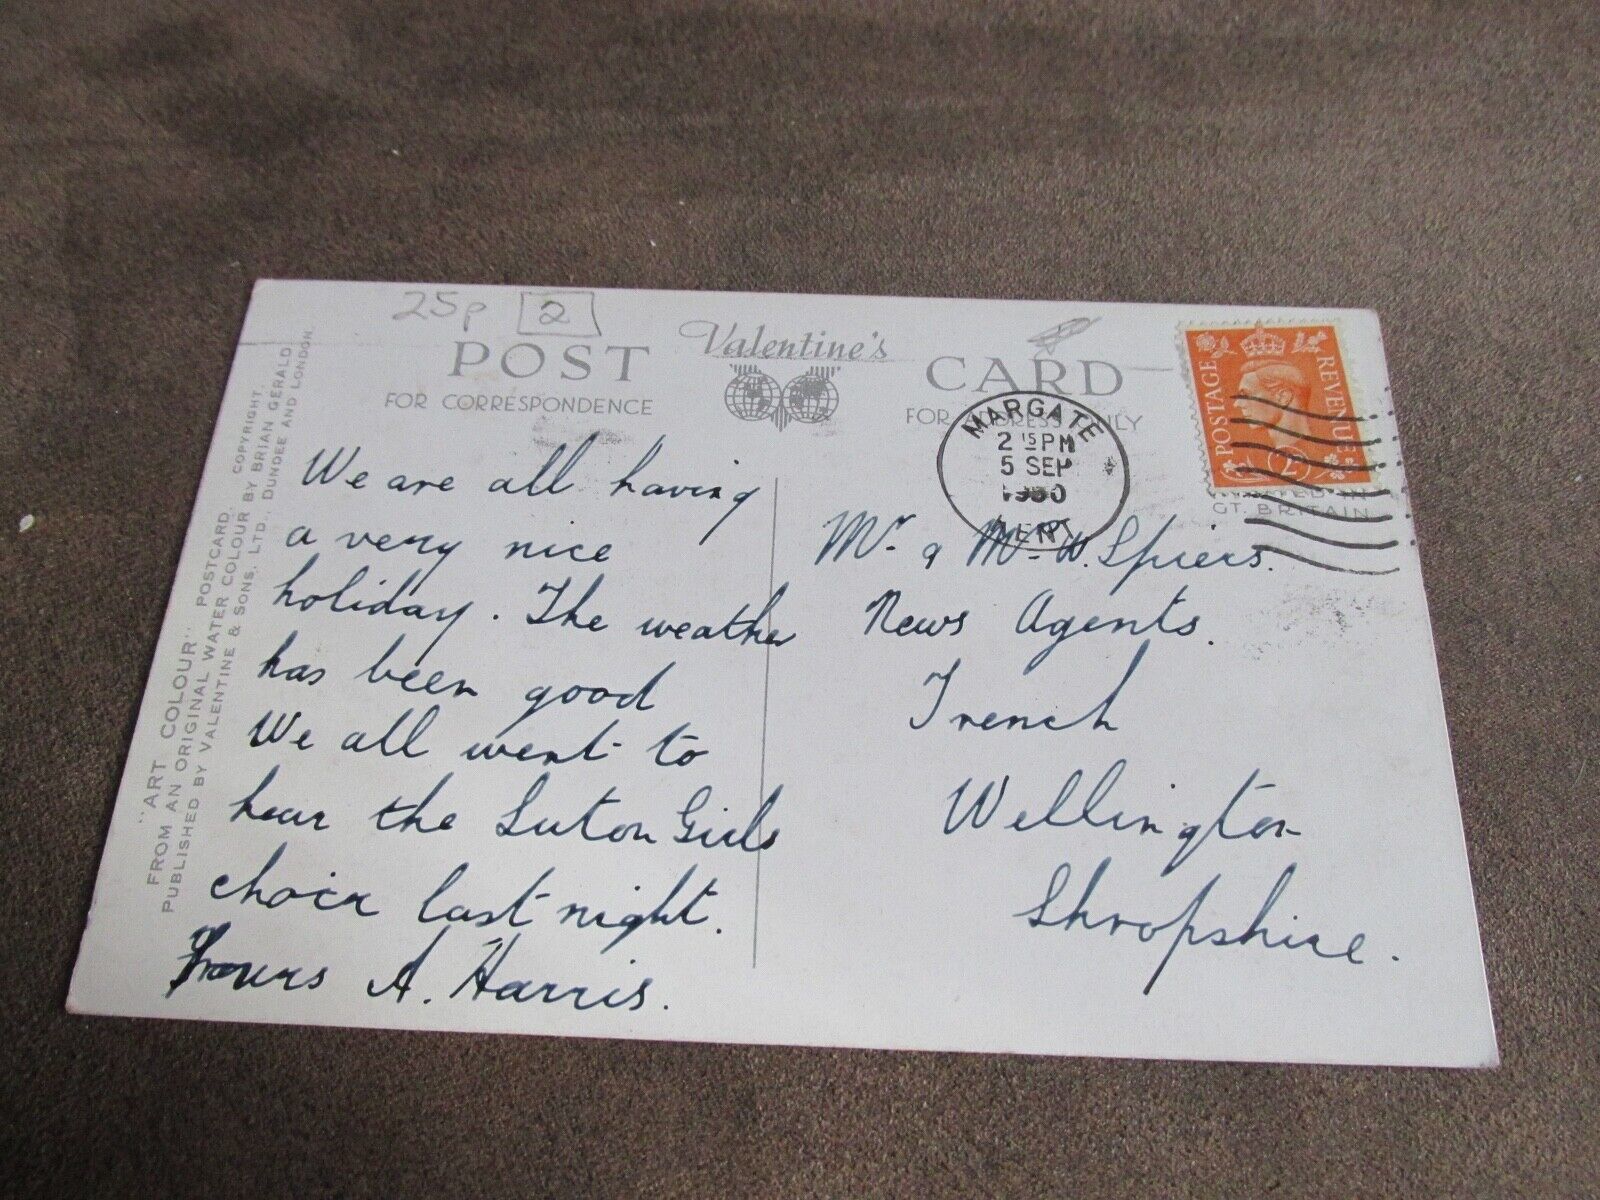 25p 2
Valentine's
POST CARD
FOR CORRESPONDENCE
FOR ADDRESS ONLY
MARGATE
2 15 PM
5 SEP
1950
KENT
POSTAGE REVENUE
2D
PRINTED IN
GT. BRITAIN
We are all having
a very nice
holiday. The weather
has been good
We all went to
hear the Luton Girls
choir last night.
Yours A. Harris.
Mr & Mrs W. Spiers.
News Agents.
Trench
Wellington
Shropshire.
"ART COLOUR" POSTCARD. COPYRIGHT.
FROM AN ORIGINAL WATER COLOUR BY BRIAN GERALD
PUBLISHED BY VALENTINE & SONS, LTD., DUNDEE AND LONDON.